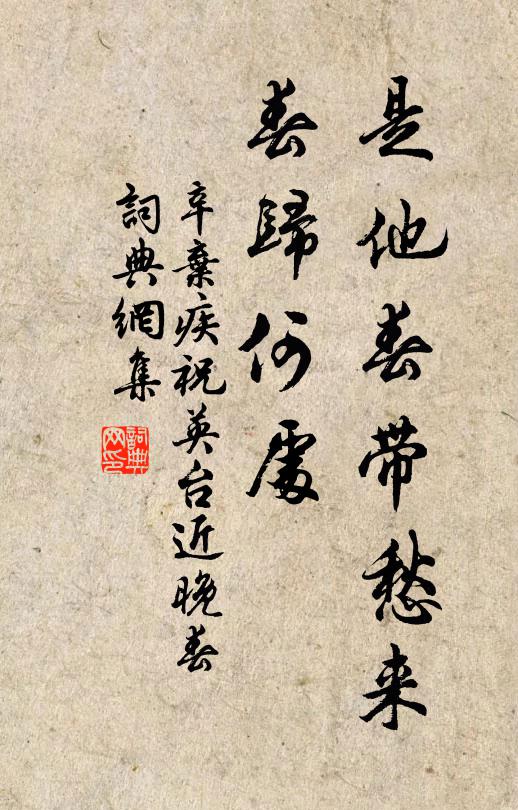 是他春帶愁来
春歸何處
辛棄疾祝英台近晚春
詞典網集
詞典
网印